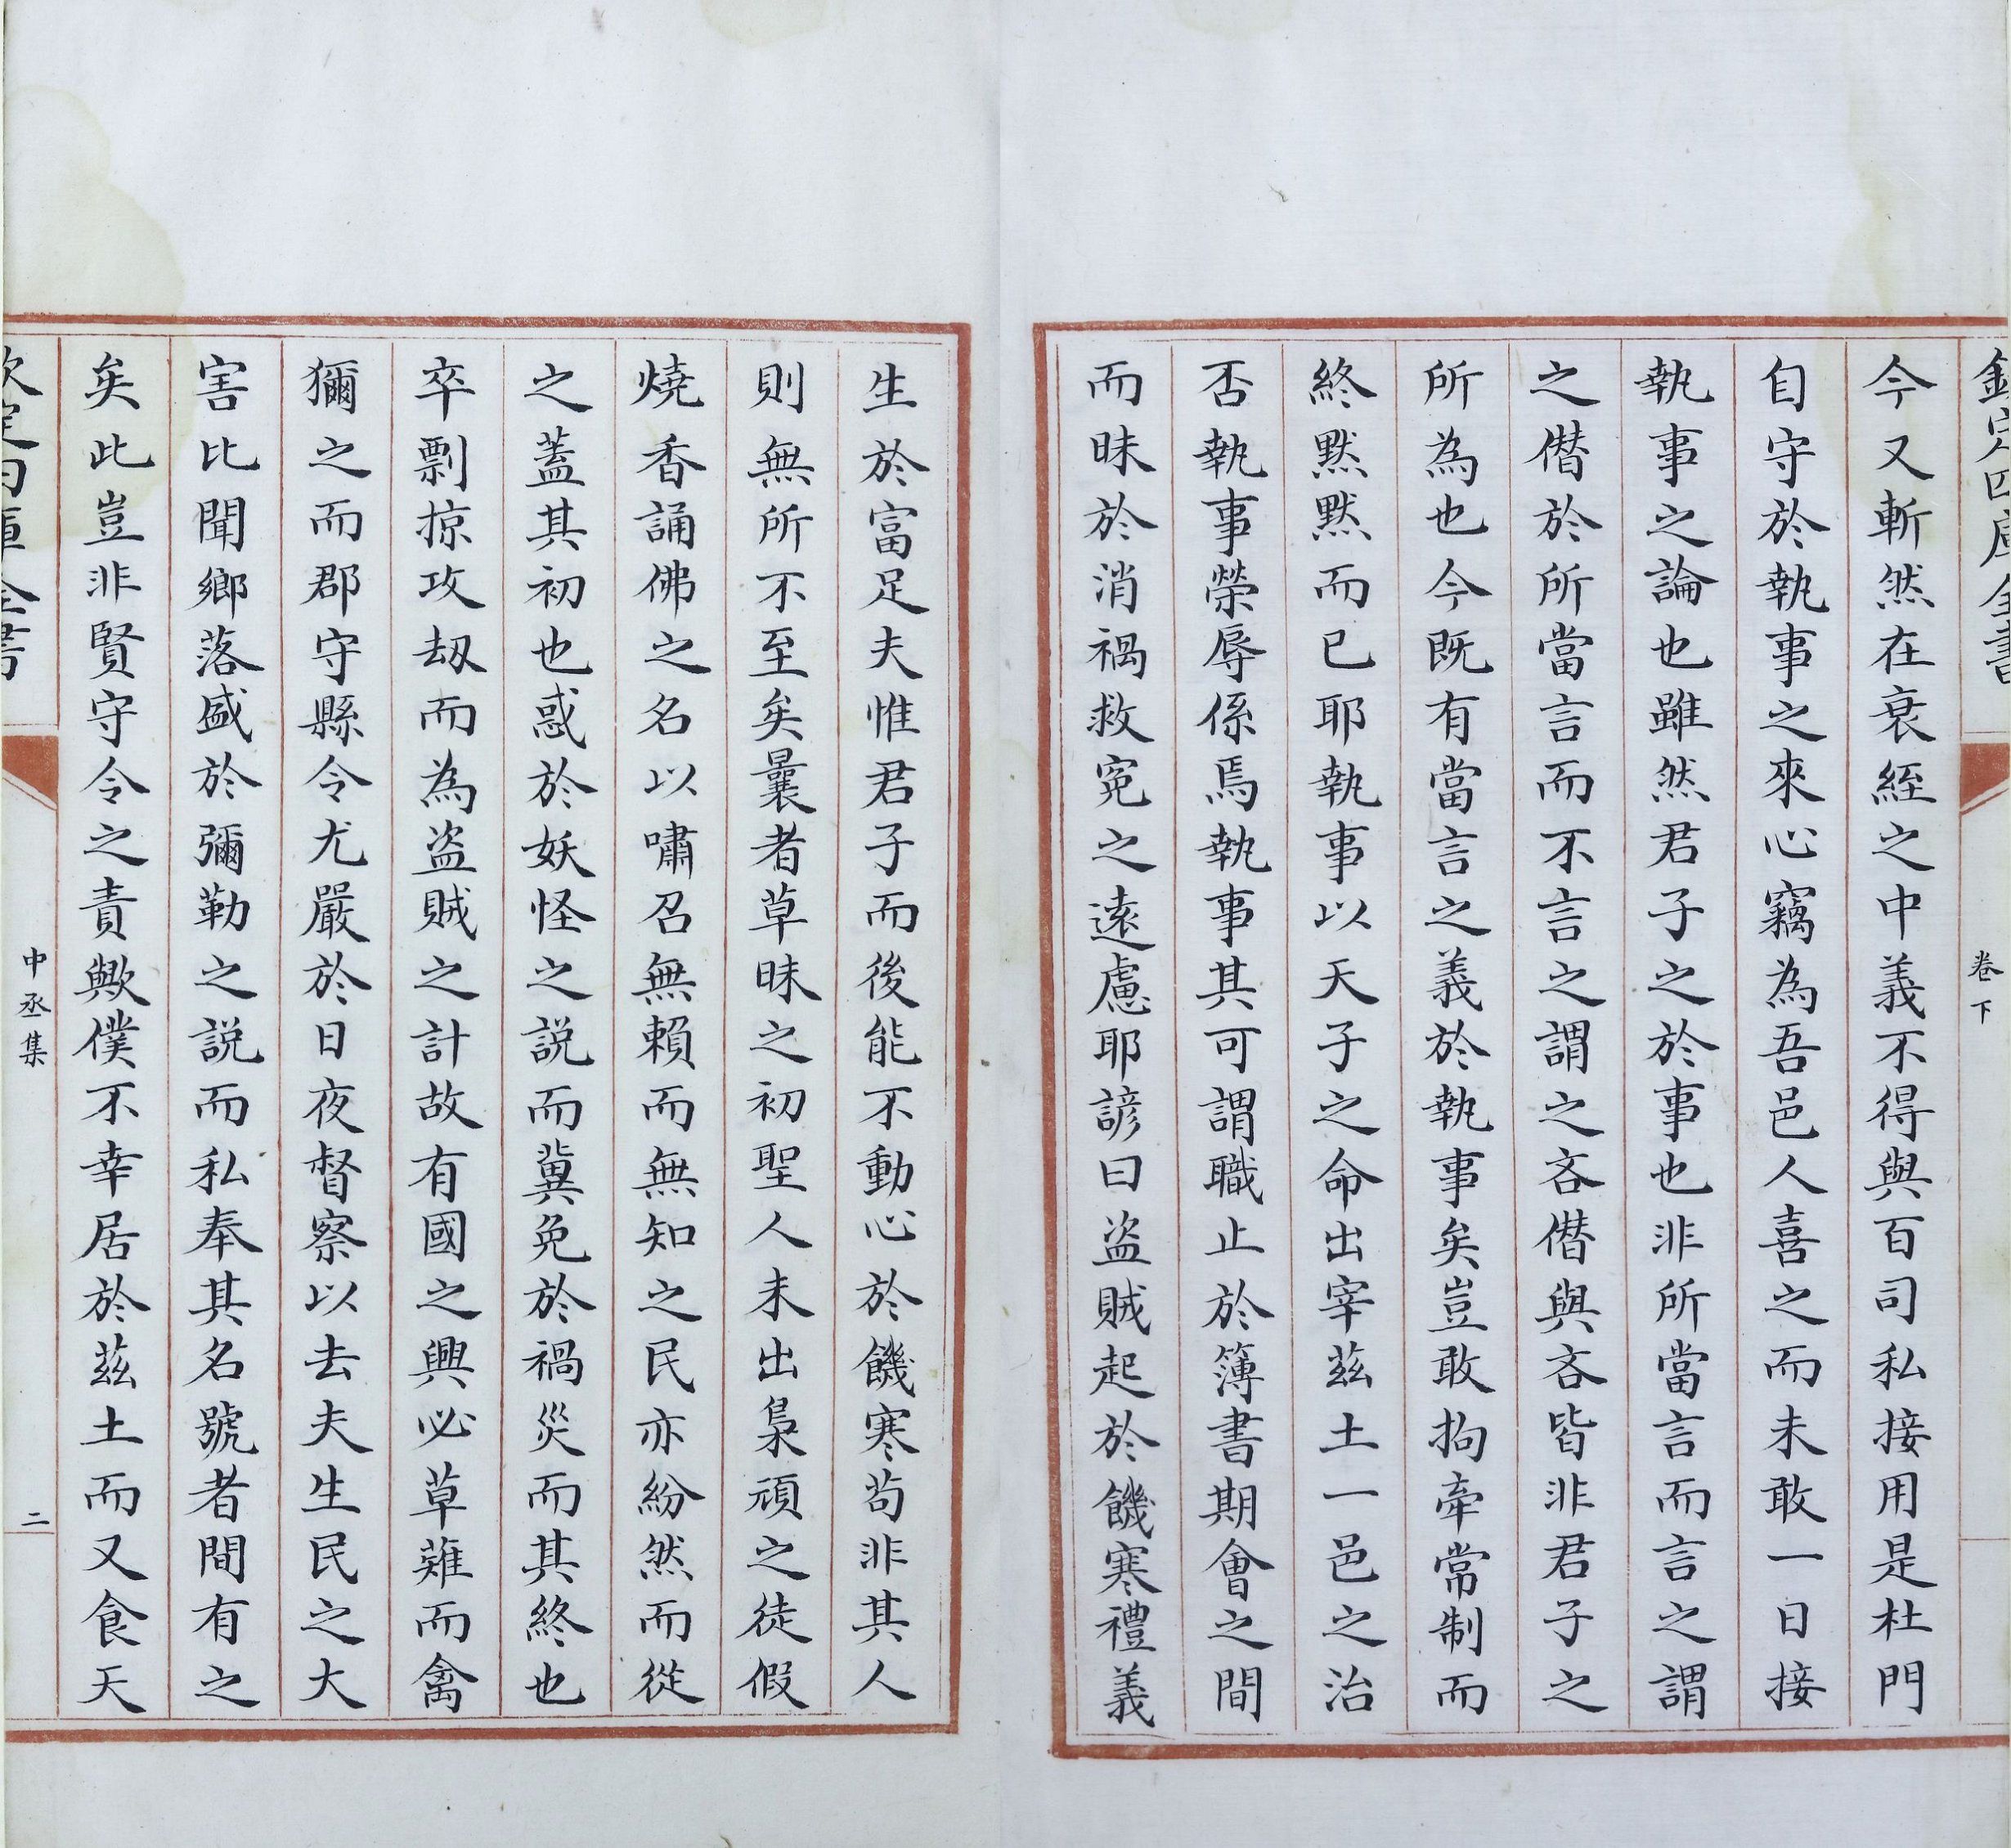 欽定四庫全書
卷下
今又斬然在衰絰之中義不得與百司私接用是杜門
自守於執事之來心竊為吾邑人喜之而未敢一日接
執事之論也雖然君子之於事也非所當言而言之謂
之僭於所當言而不言之謂之吝僭與吝皆非君子之
所為也今既有當言之義於執事矣豈敢拘牽常制而
終默默而已耶執事以天子之命出宰茲土一邑之治
否執事榮辱係焉執事其可謂職止於簿書期會之間
而昧於消禍救寃之遠慮耶諺曰盜賊起於饑寒禮義
生於富足夫惟君子而後能不動心於饑寒茍非其人
則無所不至矣曩者草昧之初聖人未出梟頑之徒假
燒香誦佛之名以嘯召無賴而無知之民亦紛然而從
之蓋其初也惑於妖怪之說而冀免於禍災而其終也
卒剽掠攻刼而為盜賊之計故有國之興必草薙而禽
獮之而郡守縣令尤嚴於日夜督察以去夫生民之大
害比聞鄉落盛於彌勒之說而私奉其名號者間有之
矣此豈非賢守令之責歟僕不幸居於茲土而又食天
欽定四庫全書
中丞集
二